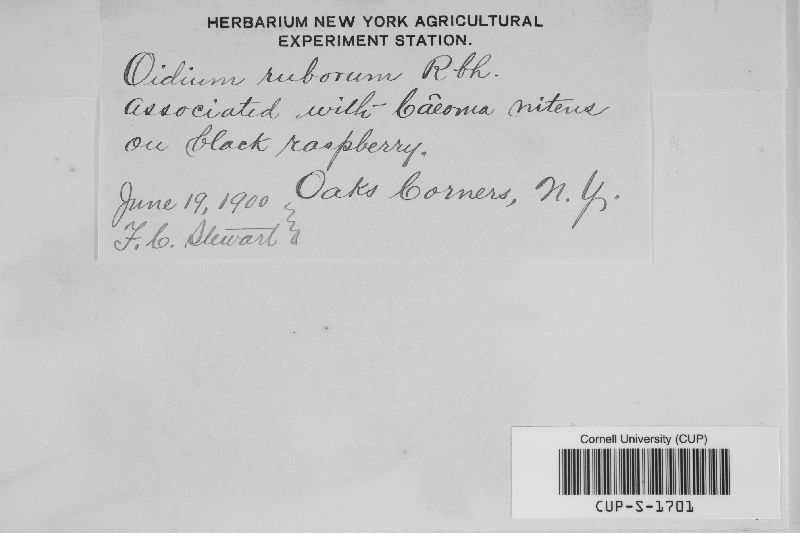 HERBARIUM NEW YORK AGRICULTURAL
EXPERIMENT STATION.
Oidium ruborum Rbh.
Associated with Cäeoma nitens
on black raspberry.
Oaks Corners, N.Y.
June 19, 1900
F.C. Stewart
Cornell University (CUP)
CUP-S-1701